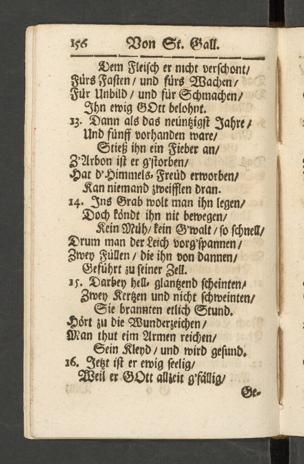 156 Von St. Gall.
Dem Fleisch er nicht verschont/
Fürs Fasten/ und fürs Wachen/
Für Unbild/ und für Schmachen/
Ihn ewig GOtt belohnt.
13. Dann als das neüntzigst Jahre/
Und fünff vorhanden ware/
Stieß ihn ein Fieber an/
Z'Arbon ist er g'storben/
Hat d'Himmels-Freüd erworben/
Kan niemand zweifflen dran.
14. Ins Grab wolt man ihn legen/
Doch köndt ihn nit bewegen/
Kein Müh/ kein G'walt/ so schnell/
Drum man der Leich vorg'spannen/
Zwey Füllen/ die ihn von dannen/
Geführt zu seiner Zell.
15. Darbey hell-glantzend scheinten/
Zwey Kertzen und nicht schweinten/
Sie brannten etlich Stund.
Hört zu die Wunderzeichen/
Man thut eim Armen reichen/
Sein Kleyd/ und wird gesund.
16. Jetzt ist er ewig seelig/
Weil er GOtt allzeit g'fällig/
Ge-